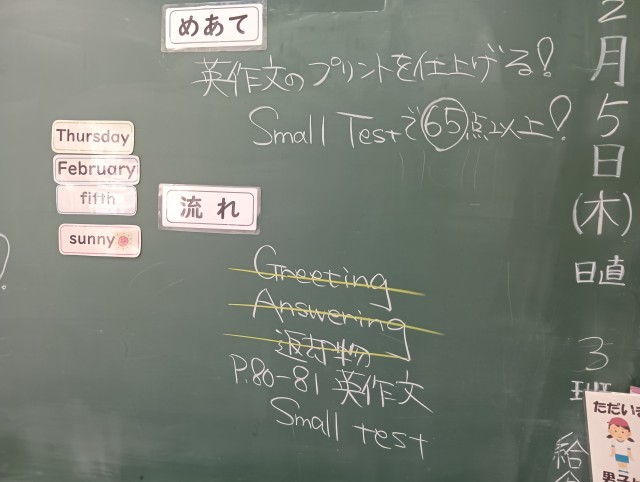 めあて
英作文のプリントを仕上げる!
Small Testで65点以上!
Thursday
February
fifth
sunny
流れ
Greeting
Answering
返却物
P.80-81 英作文
Small test
2月5日(木)
日直
3班
給
ただいま
男子